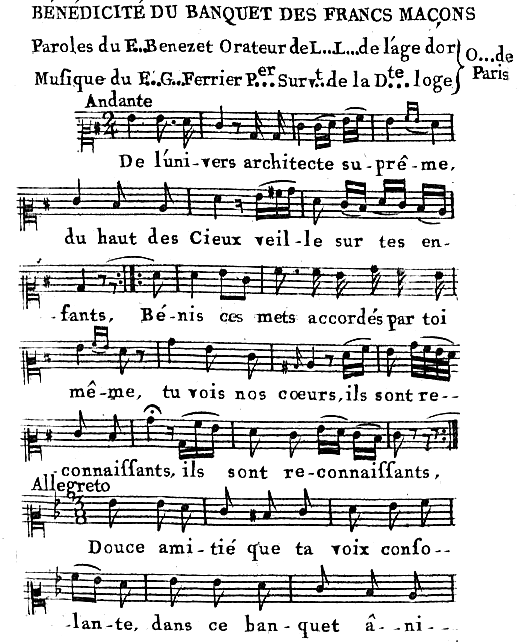 BÉNÉDICITÉ DU BANQUET DES FRANCS MAÇONS
Paroles du F..Benezet Orateur de L...L...de l'áge dór
Musique du F..G..Ferrier P...er Surv.t. de la D...te loge
O...de
Paris
Andante
De lúni-vers architecte su-prê-me,
du haut des Cieux veil-le sur tes en-
-fants, Bé-nis ces mets accordés par toi
mê-me, tu vois nos cœurs, ils sont re--
-connaiſſants, ils sont re-connaiſſants,
Allegreto
Douce ami-tié que ta voix conſo--
-lan-te, dans ce ban-quet â--ni--